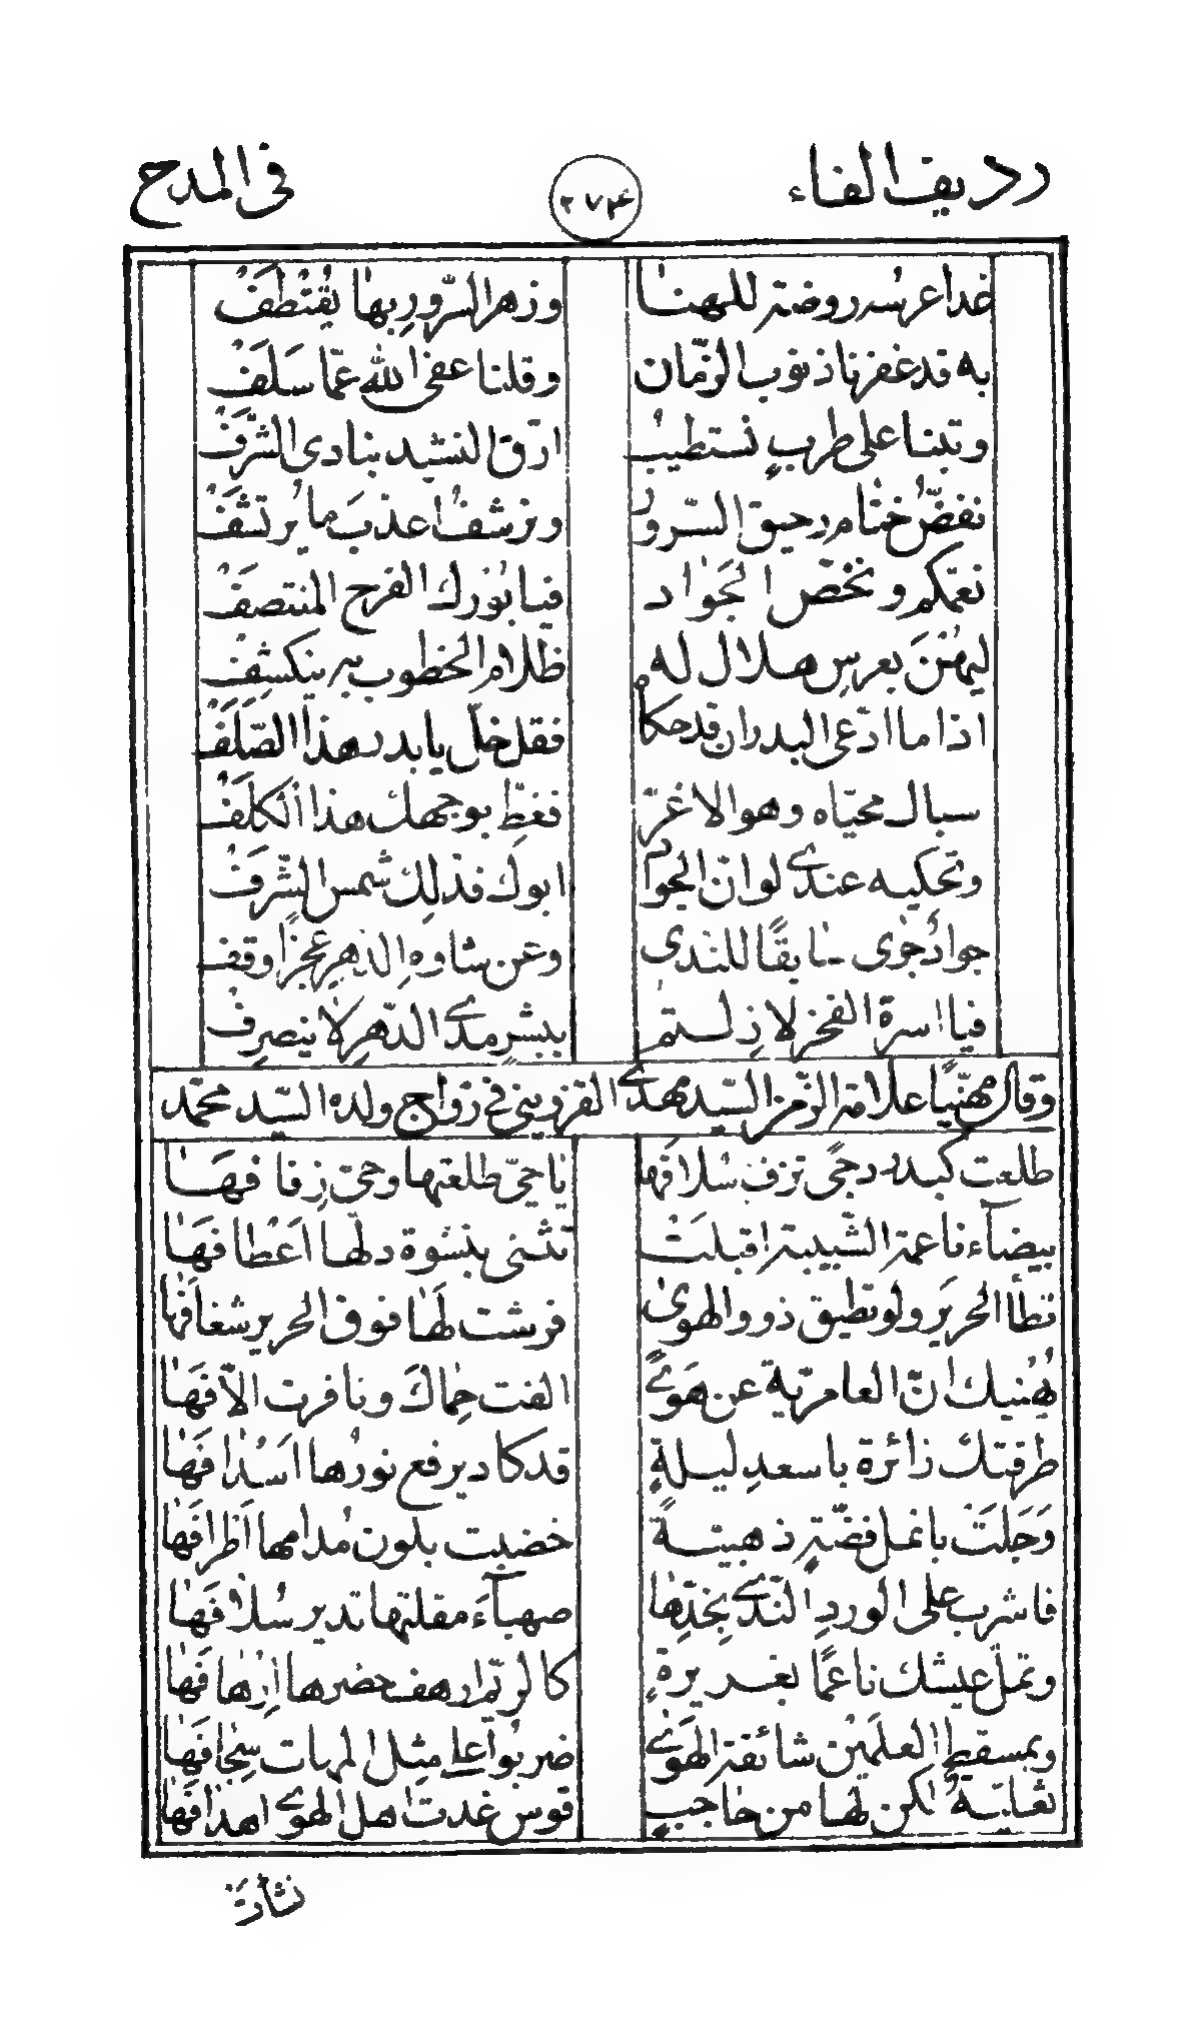 رديف الفاء ٢٧٤ في المدح
غدا عرسه روضة للهنا وزهر السّرور بها يُقتطفُ
به قد غفرنا ذنوب الزّمان وقلنا عفى الله عمّا سَلَفُ
وتبنا على طربٍ نستطيبُ ارّق النشيد بنادى الشّرَفُ
نفضّ ختام رحيق السّرور ونرشفُ اعذبَ ما يرتشَفُ
نعمّكم ونخصّ الجَواد فيا بُورك الفرح المنتصفُ
ليهنَنَ بعرسِ هلال له ظلام الخطوب به ينكشِفُ
اذا ما ادّعى البدر ان قد حكا فقل خلّ يا بدر هذا الصّلَفُ
سبال محيّاه وهو الاغرّ فغطّ بوجهك هذا الكلَفُ
وتحكيه عندى لو انّ الجوا ابوك فذلك شمس الشّرَفُ
جوادٌ جرى سابقًا للندى وعن شاوه الدّهر عجزًا وقف
فيا اسرة الفخر لا زلتم ببشرٍ مدى الدّهر لا ينصرِفُ
وقال مهنّيًا علّامة الزّمن السّيد مهدى القزوينى في زواج ولده السّيد محمّد
طلعت كبدر دجًى تزف سُلافَها يا حىّ طلعتها وحىّ زِفافهَا
بيضآء ناعمة الشّبيبة اقبلَتْ تثنى بنشوة دلّها اَعْطافَهَا
تطأ الحرير ولو تطيق ذووا الهوىٰ فرشت لَهَا فوق الحرير شغافَها
يُهنيك انّ العامريّة عن هَوىً الفت حِماكَ ونافرت الاّفَهَا
طرقتك زائرة باسعدِ ليلةٍ قد كاد يرفع نورُها اَسْدافَهَا
وَجَلَتْ بانمل فضّةٍ ذهبيّةً خضبت بلون مُدامها اَطرافَها
فاشرب على الوردِ النّدى بخدّها صهبآءَ مقلتها تدير سُلافَهَا
وتملّ عيشك ناعمًا بغريرةٍ كالريّم ارهف خصرها اِرْهافَها
وبمسقط العلَمَين شائقة الهَوىٰ ضربُوا على مثل المهات سِجافَهَا
لكن لها من حاجبٍ قوس غدت اهل الهوى اهدافَها